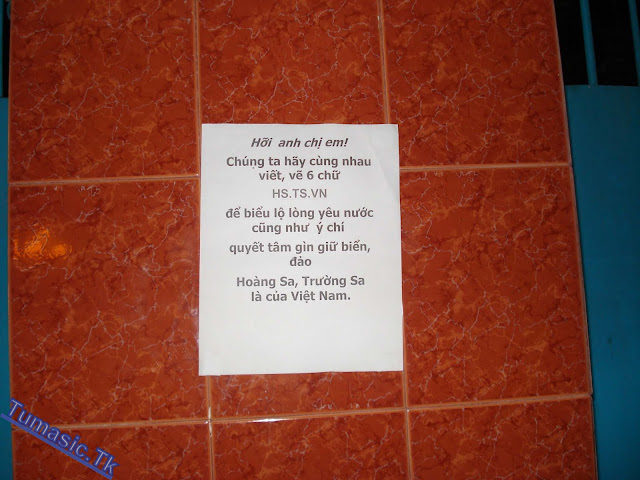 Hỡi anh chị em!
Chúng ta hãy cùng nhau
viết, vẽ 6 chữ
HS.TS.VN
để biểu lộ lòng yêu nước
cũng như ý chí
quyết tâm gìn giữ biển,
đảo
Hoàng Sa, Trường Sa
là của Việt Nam.
Tumasic.Tk